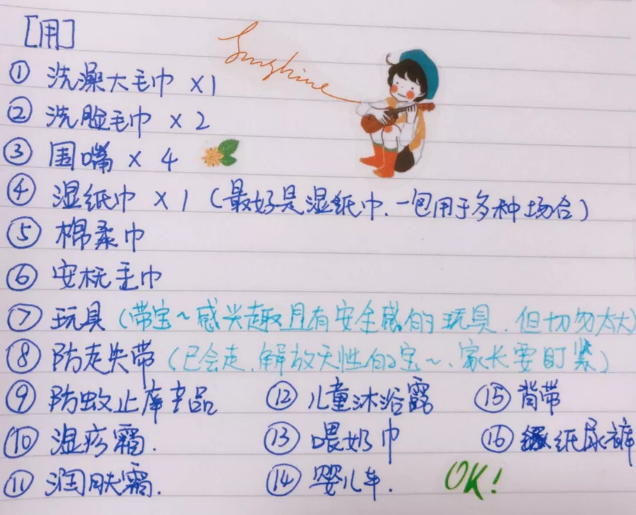 [用]
Sunshine
① 洗澡大毛巾 ×1
② 洗脸毛巾 ×2
③ 围嘴 × 4
④ 湿纸巾 ×1 (最好是湿纸巾.一包用于多种场合)
⑤ 棉柔巾
⑥ 安抚毛巾
⑦ 玩具 (带宝~感兴趣且有安全感的玩具.但切勿太大)
⑧ 防走失带 (已会走.解放天性的宝~.家长要盯紧)
⑨ 防蚊止痒产品 ⑫ 儿童沐浴露 ⑮ 背带
⑩ 湿疹霜. ⑬ 喂奶巾 ⑯ 纸尿裤
⑪ 润肤霜. ⑭ 婴儿车. OK!